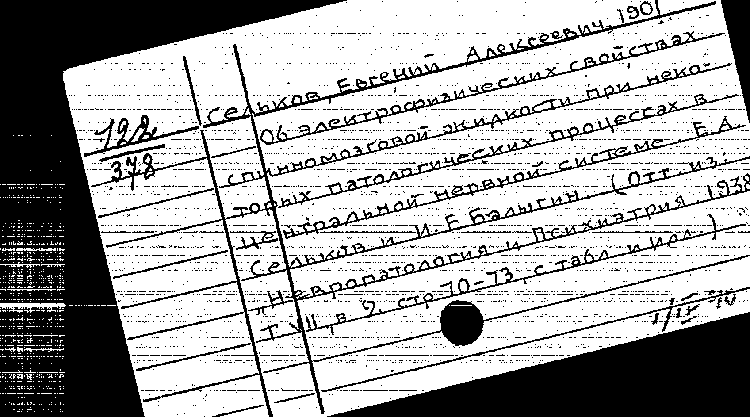 122
378
Сельков, Евгений Алексеевич, 1901
Об электрофизических свойствах
спинномозговой жидкости при неко-
торых патологических процессах в
центральной нервной системе. Е.А.
Сельков и И.Е Балыгин. (Отт. из:
„Невропатология и Психиатрия. 1938
Т VII, в 9. стр 70-73, с табл. и илл.)
1/IX 40